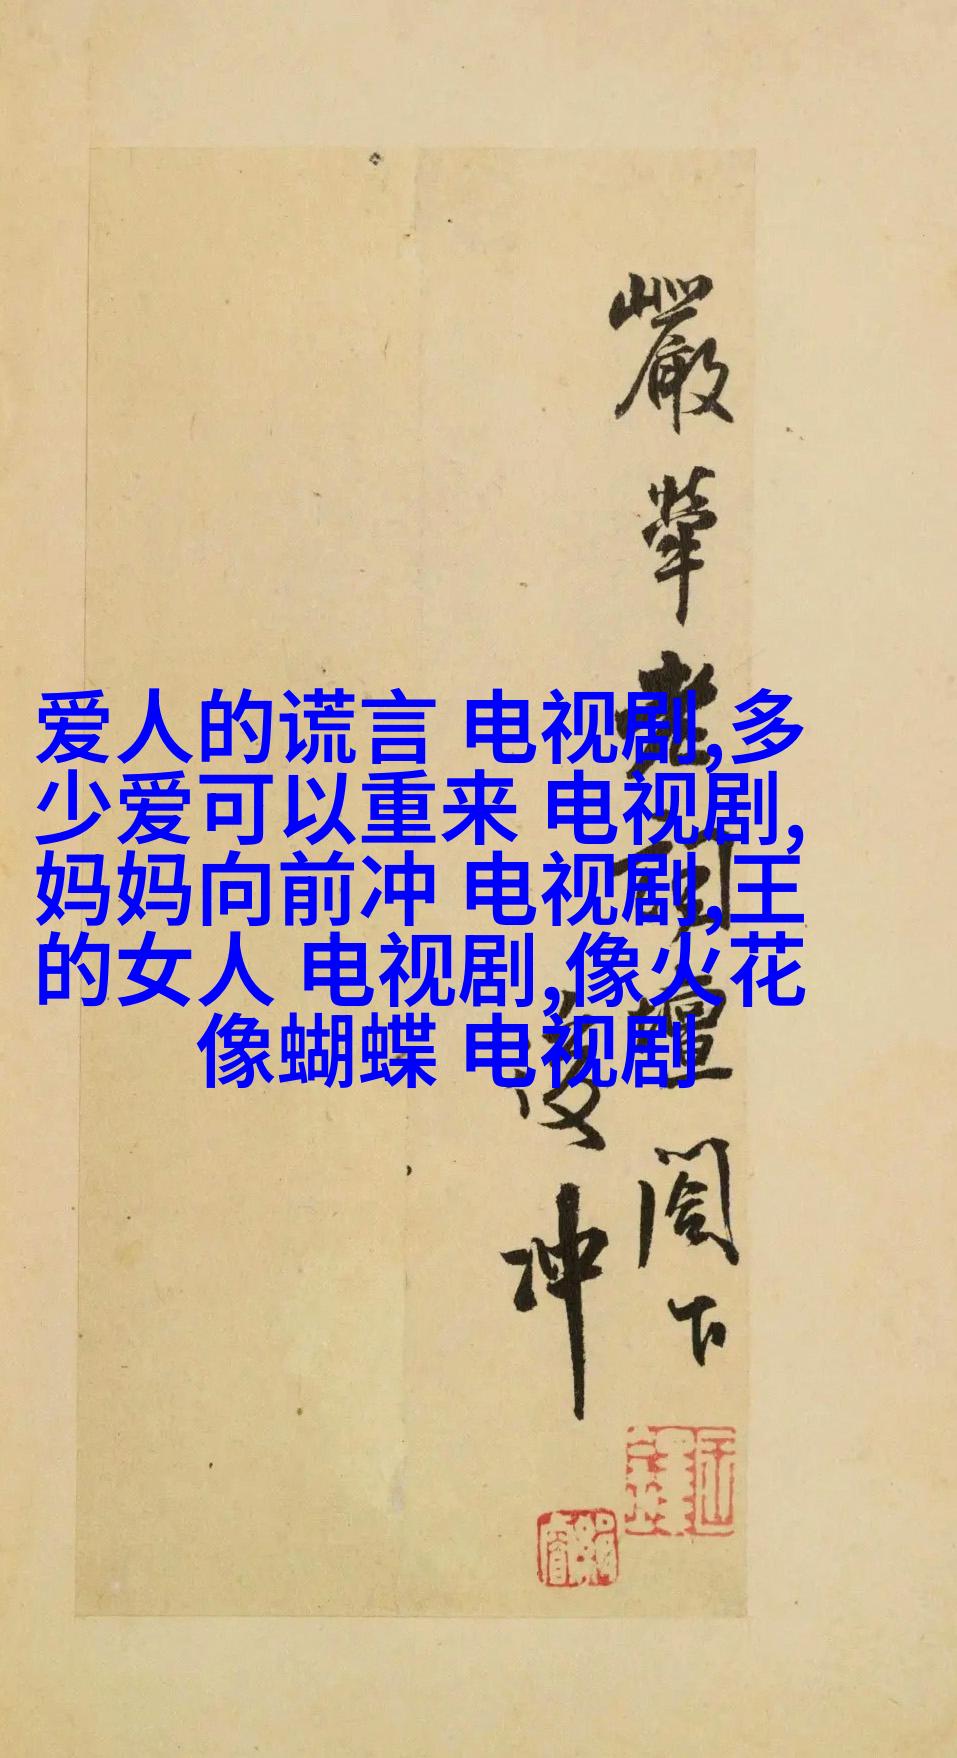 爱人的谎言 电视剧,多
少爱可以重来 电视剧,
妈妈向前冲 电视剧,王
的女人 电视剧,像火花
像蝴蝶 电视剧
嚴犖老詞壇閣下
凌冲